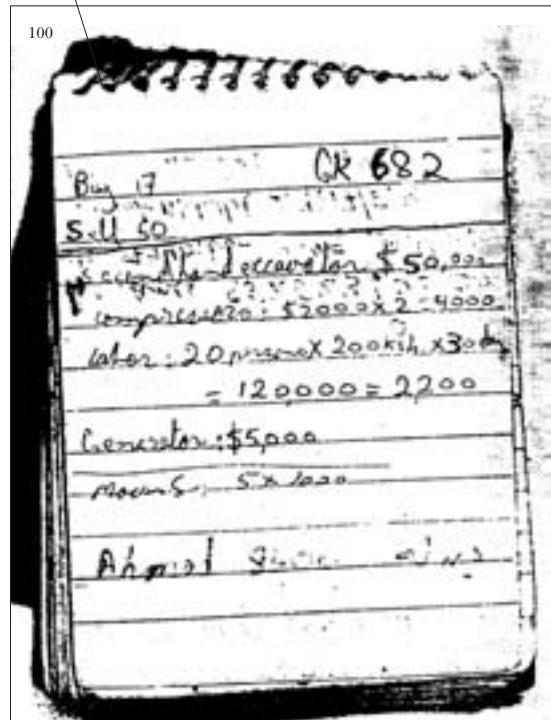 100
GK 682
Buy 17
Sell 50
Second Hand excavator: $50,000
compressors: $2000 x 2 = 4000
labor: 20 persons x 200Ksh x 30 day
= 120,000 = 2,200
Generator: $5,000
5 x 1000
Ahmed